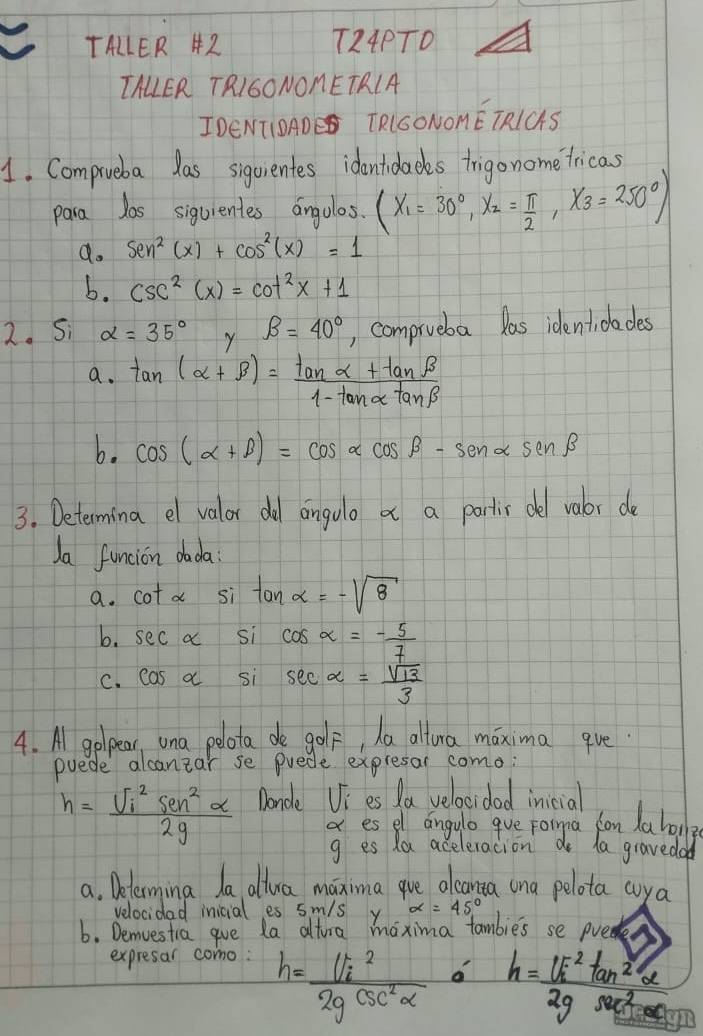 TALLER #2 T24PTO
TALLER TRIGONOMETRIA
IDENTIDADES TRIGONOMÉTRICAS
1. Comprueba las siguientes identidades trigonométricas
para los siguientes ángulos. (X₁ = 30°, X₂ = π/2, X₃ = 250°)
a. sen² (x) + cos² (x) = 1
b. csc² (x) = cot² x + 1
2. Si α = 35° y β = 40°, comprueba las identidades
a. tan (α + β) = (tan α + tan β)/(1 - tan α tan β)
b. cos (α + β) = cos α cos β - sen α sen β
3. Determina el valor del ángulo α a partir del valor de
la función dada:
a. cot α si tan α = -√8
b. sec α si cos α = -5/7
c. cos α si sec α = √13/3
4. Al golpear una pelota de golf, la altura máxima que
puede alcanzar se puede expresar como:
h = (Vi² sen² α)/2g Donde Vi es la velocidad inicial
α es el ángulo que forma con la horiz
g es la aceleración de la gravedad
a. Determina la altura máxima que alcanza una pelota cuya
velocidad inicial es 5m/s y α = 45°
b. Demuestra que la altura máxima tambiés se puede
expresar como: h = Vi²/(2g csc² α) ó h = (Vi² tan² α)/(2g sec² α)